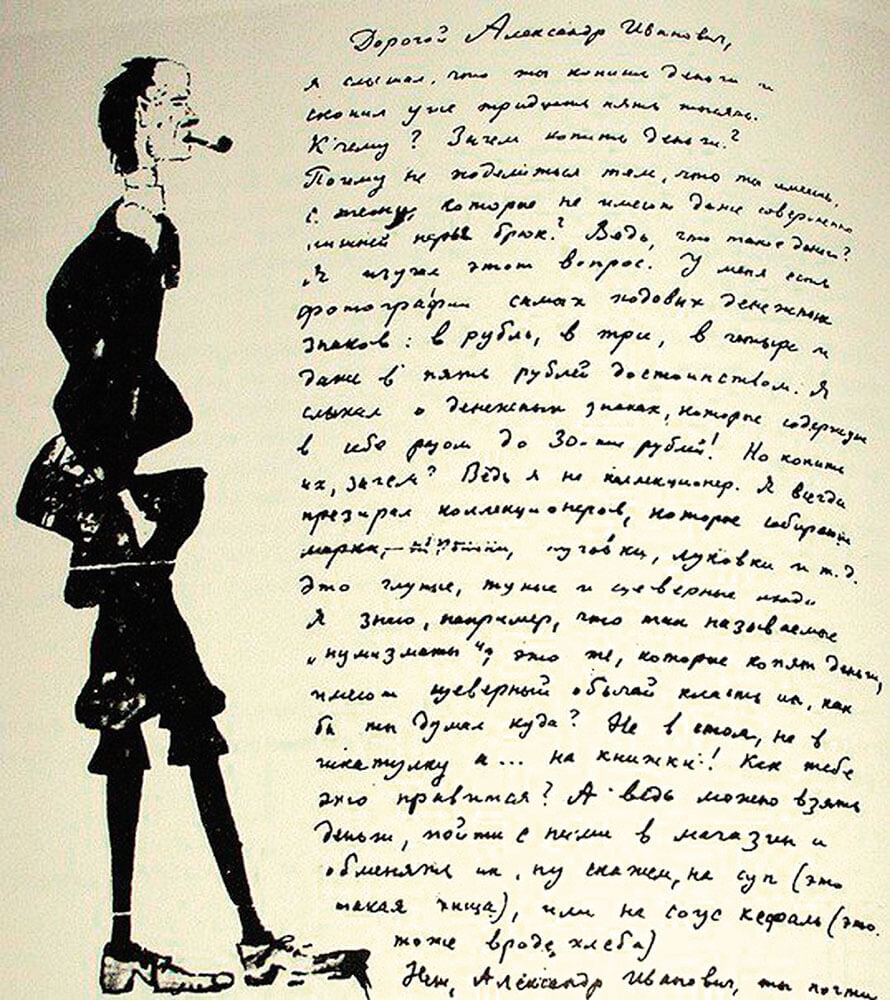 Дорогой Александр Иванович,
я слышал, что ты копишь деньги и
скопил уже тридцать пять тысяч.
К чему? Зачем копить деньги?
Почему не поделиться тем, что ты имеешь,
с теми, которые не имеют даже совершенно
лишней пары брюк? Ведь, что такое деньги?
Я изучал этот вопрос. У меня есть
фотографии самых ходовых денежных
знаков: в рубль, в три, в четыре и
даже в пять рублей достоинством. Я
слыхал о денежных знаках, которые содержат
в себе разом до 30-ти рублей! Но копить
их, зачем? Ведь я не коллекционер. Я всегда
презирал коллекционеров, которые собирают
марки, пуговки, луковки и т.д.
Это глупые, тупые и суеверные люди
Я знаю, например, что так называемые
„нумизматы", это те, которые копят деньги,
имеют суеверный обычай класть их, как
бы ты думал куда? Не в стол, не в
шкатулку а... на книжки! Как тебе
это нравится? А ведь можно взять
деньги, пойти с ними в магазин и
обменять их, ну скажем, на суп (это
такая пища), или на соус кефаль (это
тоже вроде хлеба)
Нет, Александр Иванович, ты почти